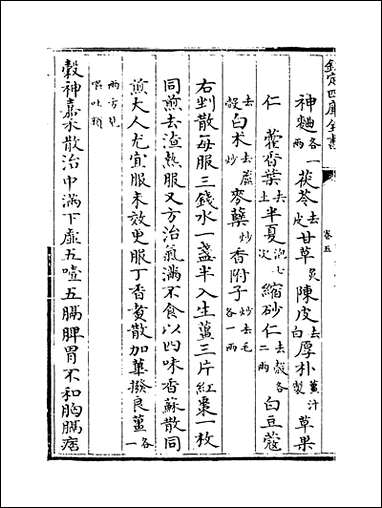 欽定四庫全書
卷五
神麯各一兩茯苓去皮甘草炙陳皮去白厚朴薑汁製草果
仁 藿香葉去土半夏泡七次縮砂仁去殼各二兩 白豆蔻
去殼白术去蘆炒 麥蘖炒香附子炒去毛各一兩
右剉散每服三錢水一盞半入生薑三片紅棗一枚
同煎去渣熱服又方治氣滿不食以四味香蘇散同
煎大人尤宜服未效更服丁香煑散加蓽撥良薑各一
兩方見嘔吐類
穀神嘉禾散治中滿下虛五噎五膈脾胃不和胸膈痞